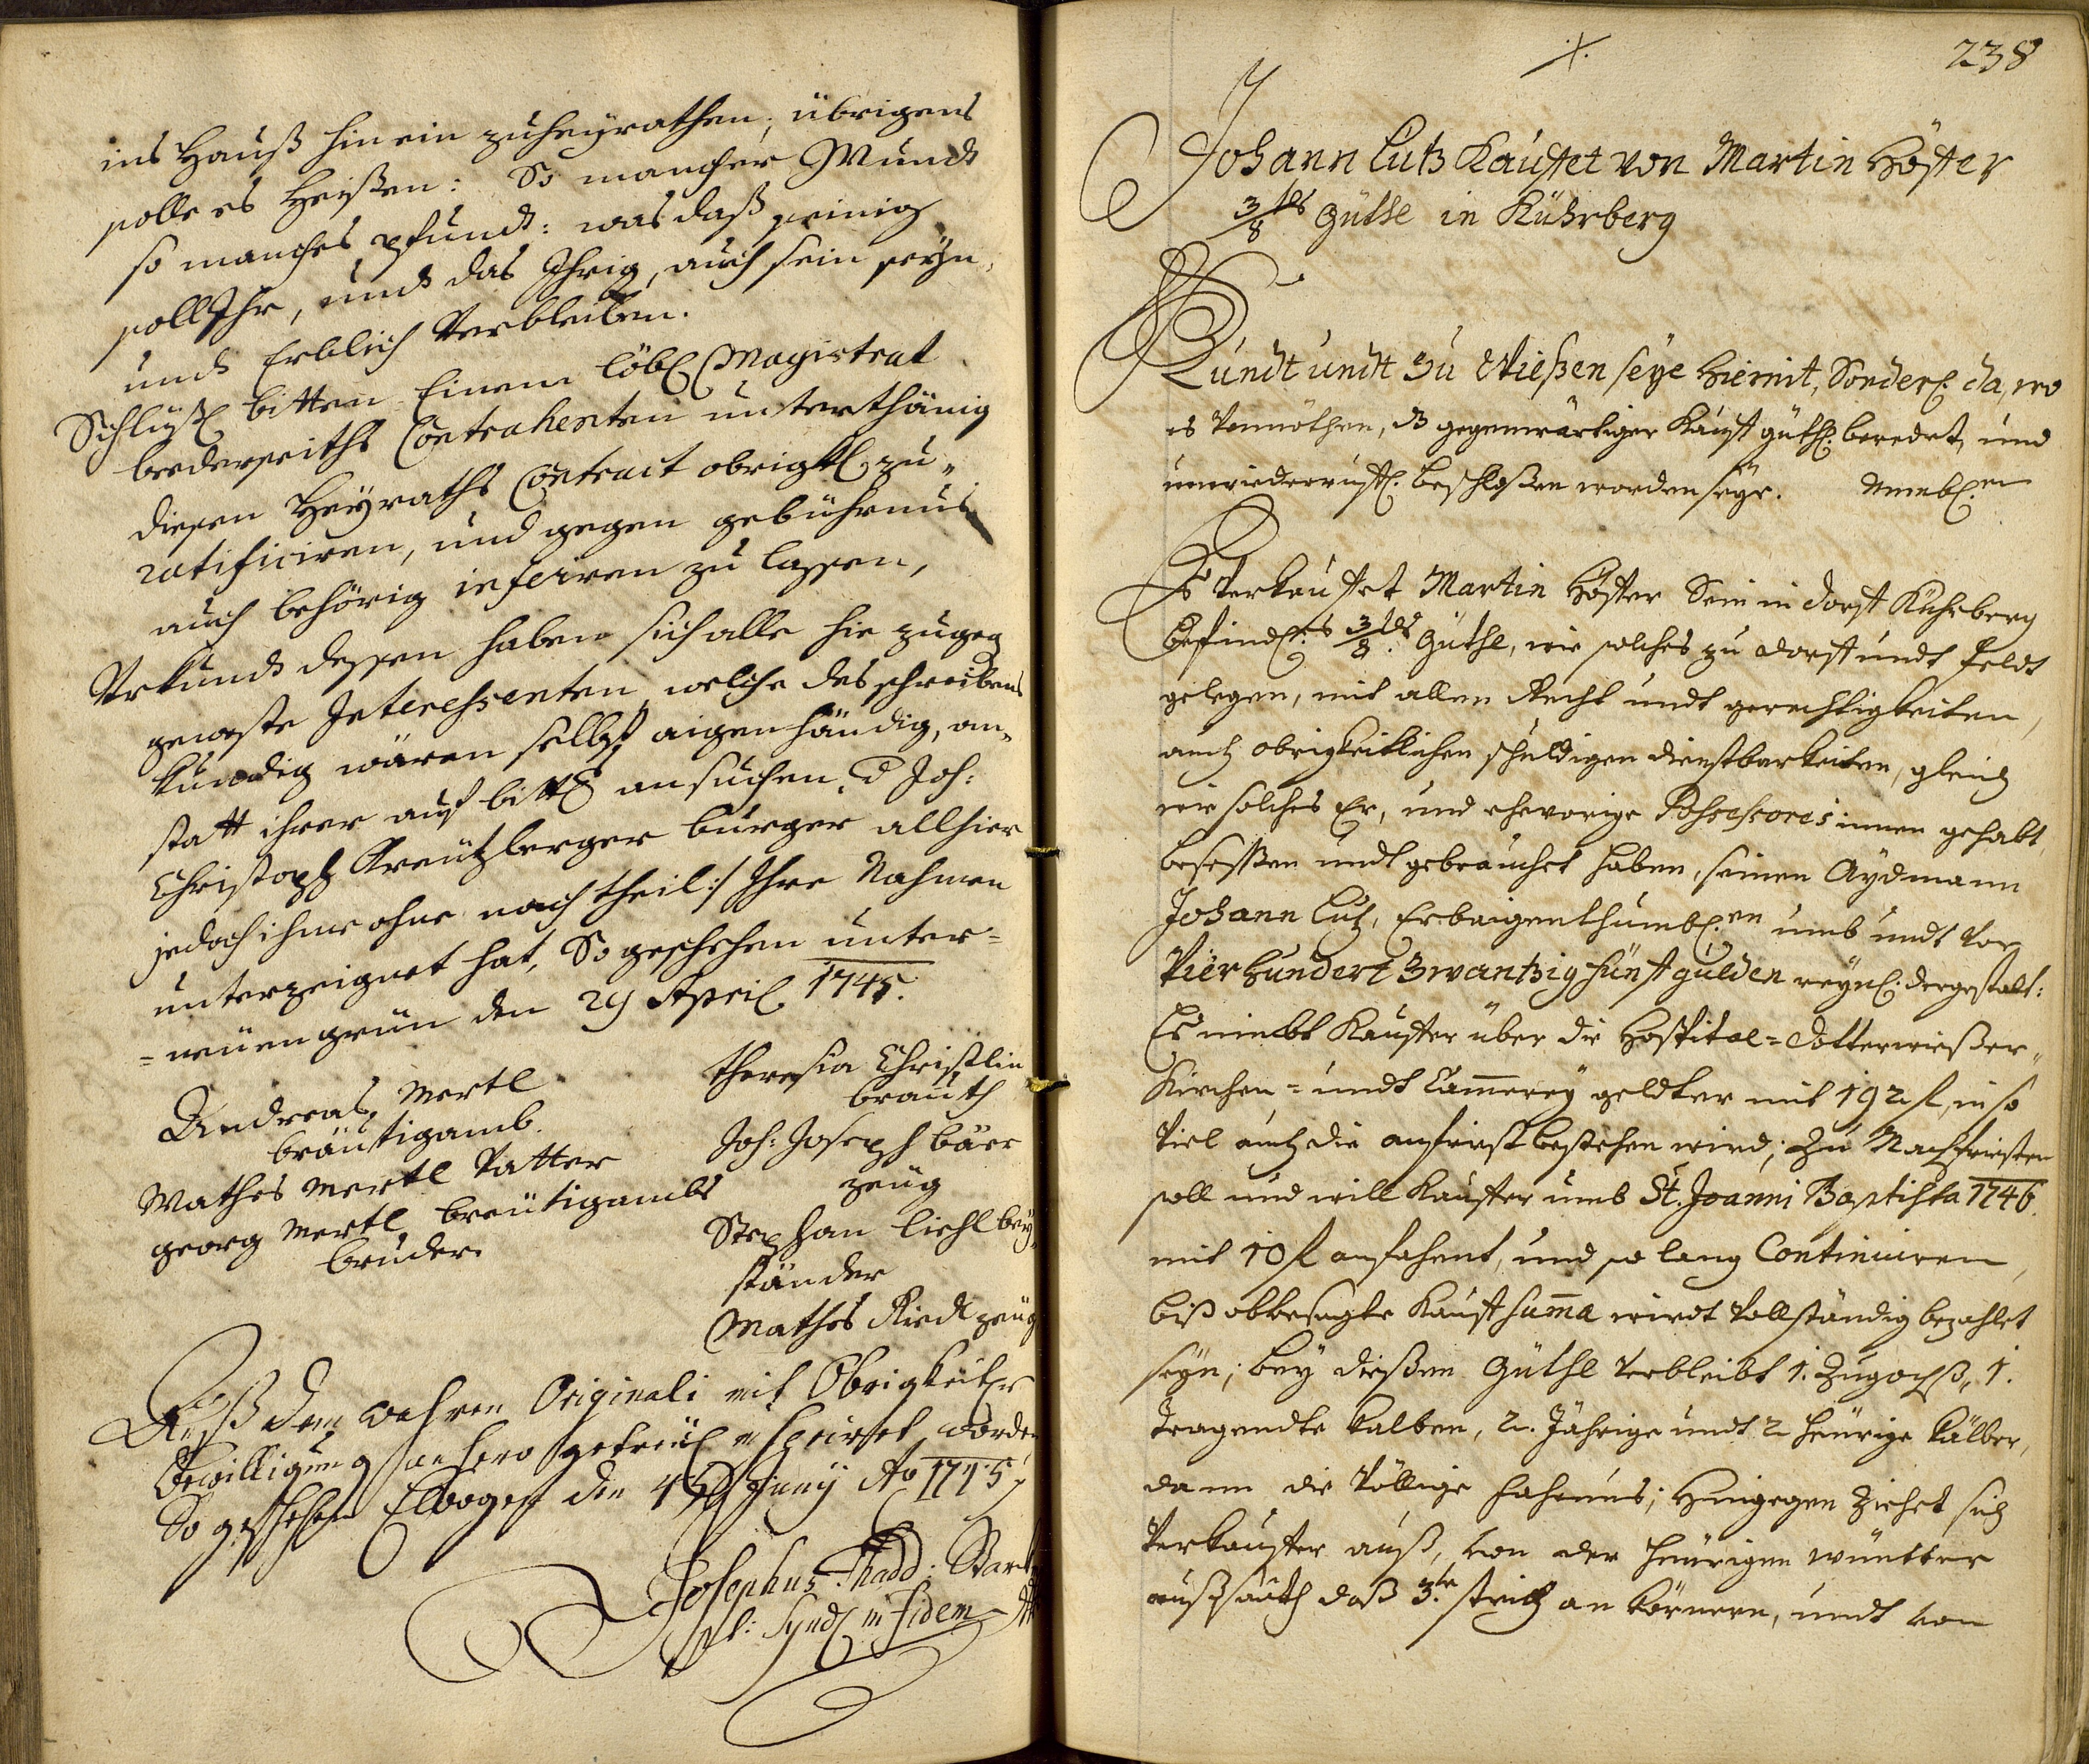 ins Hauß hinein zuheÿrathen, übrigens
solle es Heißen: So mancher Mundt
so manches pfundt: was daß seinig
soll Ihr, undt das Ihrig, auch sein seÿn,
undt Erblich Verbleiben.
Schlüßl bitten Einem löbl Magistrat
bederseiths Contrahenten unterthänig
diesen Heÿraths Contract obrigktl zu„
ratificiren, und gegen gebührnus
auch behörig inseriren zu lassen,
Urkundt dessen haben sich alle hie zugeg
geweste Interessenten welche des schreibens
kundig wären selbst aigenhändig, an„
statt ihrer auf bittl ansuchen d Joh:
Christoph Kreützberger burger allhier
jedoch ihme ohne nachtheil:/ Ihre Nahmen
unterzeignet hat, So geschehen unter=
=neüengrün den 29 April 1745.
Andreas Mertl
bräutigamb.
Mathes Mertl Vatter
georg Mertl breütigambs
bruder.
Theresia Christlin
brauth
Joh: Joseph bäer
zeüg
Stephan liehl beÿ„
ständer
Mathes Riedl zeüg
Auß dem wahren Originali mit Obrigkeitler
Bewilligung anhero getreül inseriret worden
So geschehen Elbogen den 4ten Junÿ Ao 1745
Josephus Thadd: Stark
pl: Synd in fidem
238
Johann Lutz Kauffet von Martin Höffer
3/8tls Güthl in Kührberg
Kundt undt Zu Wießen seÿe Hiemit, Sonderl. da, wo
es Vonnöthen, dß gegenwärtiger Kauff güthl. beredet, und
unwiederruffl. beschloßen worden seÿe. Nembl.en
Es Verkauffet Martin Höffer Sein in dorff Kührberg
befindl.es 3/8tls Güthl, wie solches zu dorff undt feldt
gelegen, mit allen Recht undt gerechtigkeiten,
auch obrigkeitlichen schuldigen dienstbarkeiten, gleich
wie solches Er, und ehevorige Possessores innen gehabt,
besessßen undt gebrauchet haben, seinen Aydmann
Johann Lutz, Erbaigenthumbl.en umb undt Vor
Vierhundert Zwantzig fünff gulden reÿnl. dergestalt:
Es nimbt Kauffer über die Hospital= dotterwießer„
Kirchen= undt Cam̄ereÿ geldter mit 192 fl, in so
Viel auch die anfrist bestehen wird; Zu Nachfristen
soll und will Kauffer umb St. Joanni Baptista 1746.
mit 10 fl anfahent, und so lang Continuiren,
biß obbesagte Kauffsum̄a wirdt Vollständig bezahlet
seÿn; beÿ dießen Gütchl Verbleibt 1. Zugochß, 1.
Tragendte kalben, 2. Jährige undt 2 heürige kälber,
dann die Völlige fahrnus; Hingegen Ziehet sich
Verkauffer auß, Von der heürigen wüntter
außsaath daß 3.te strich an körnern, undt Von